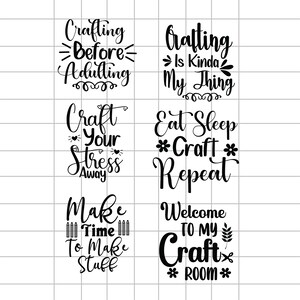 Crafting
Before
Adulting
Crafting
Is Kinda
My Thing
Craft
Your
Stress
Away
Eat Sleep
Craft
Repeat
Make
Time
To Make
Stuff
Welcome
TO MY
Craft
ROOM